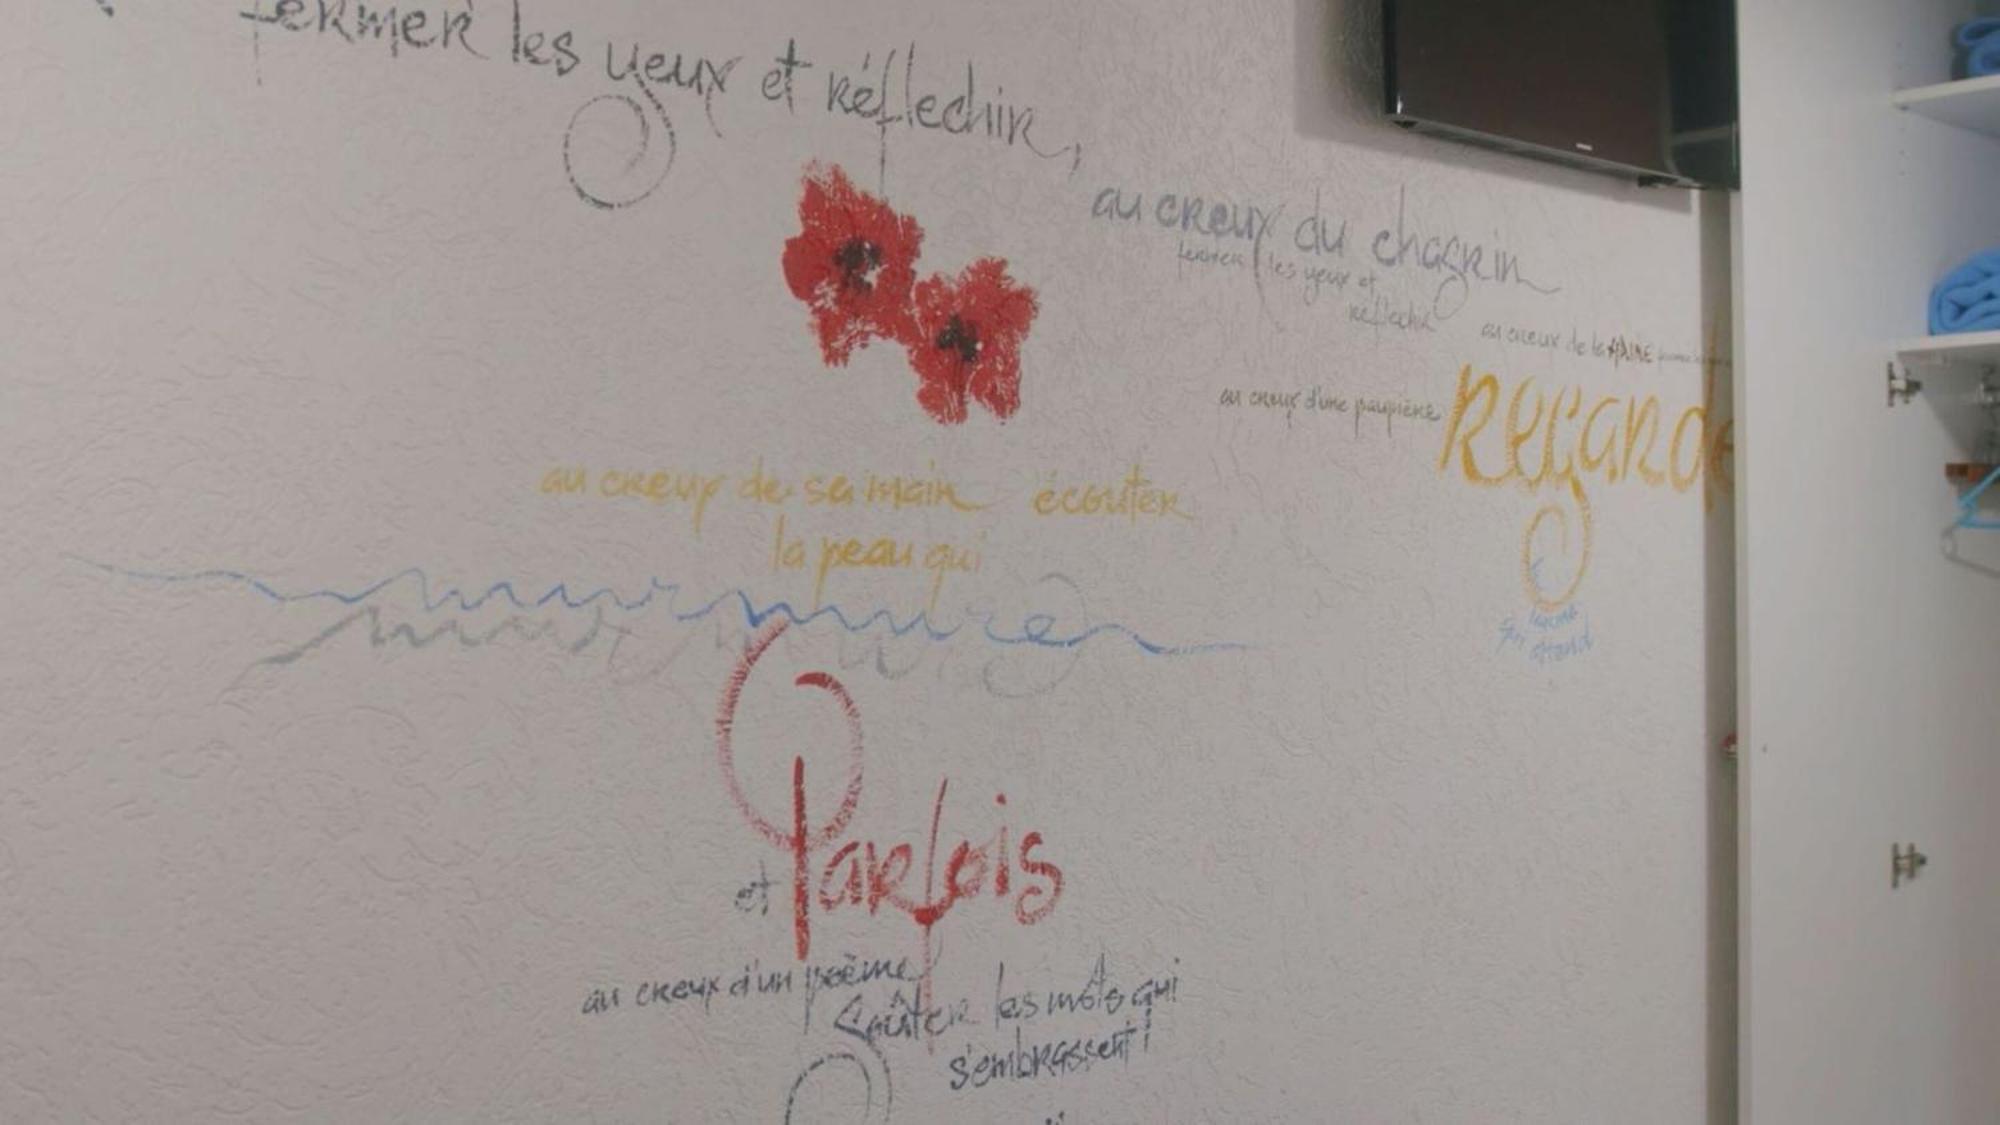 fermer les yeux et réflechir,
au creux du chagrin
fermer les yeux et
réflechir
au creux de la HAINE
au creux d'une paupière
Regarde
larme
qui attend
au creux de sa main écouter
la peau qui
murmure
et Parfois
au creux d'un poème
Goûter les mots qui
s'embrassent!